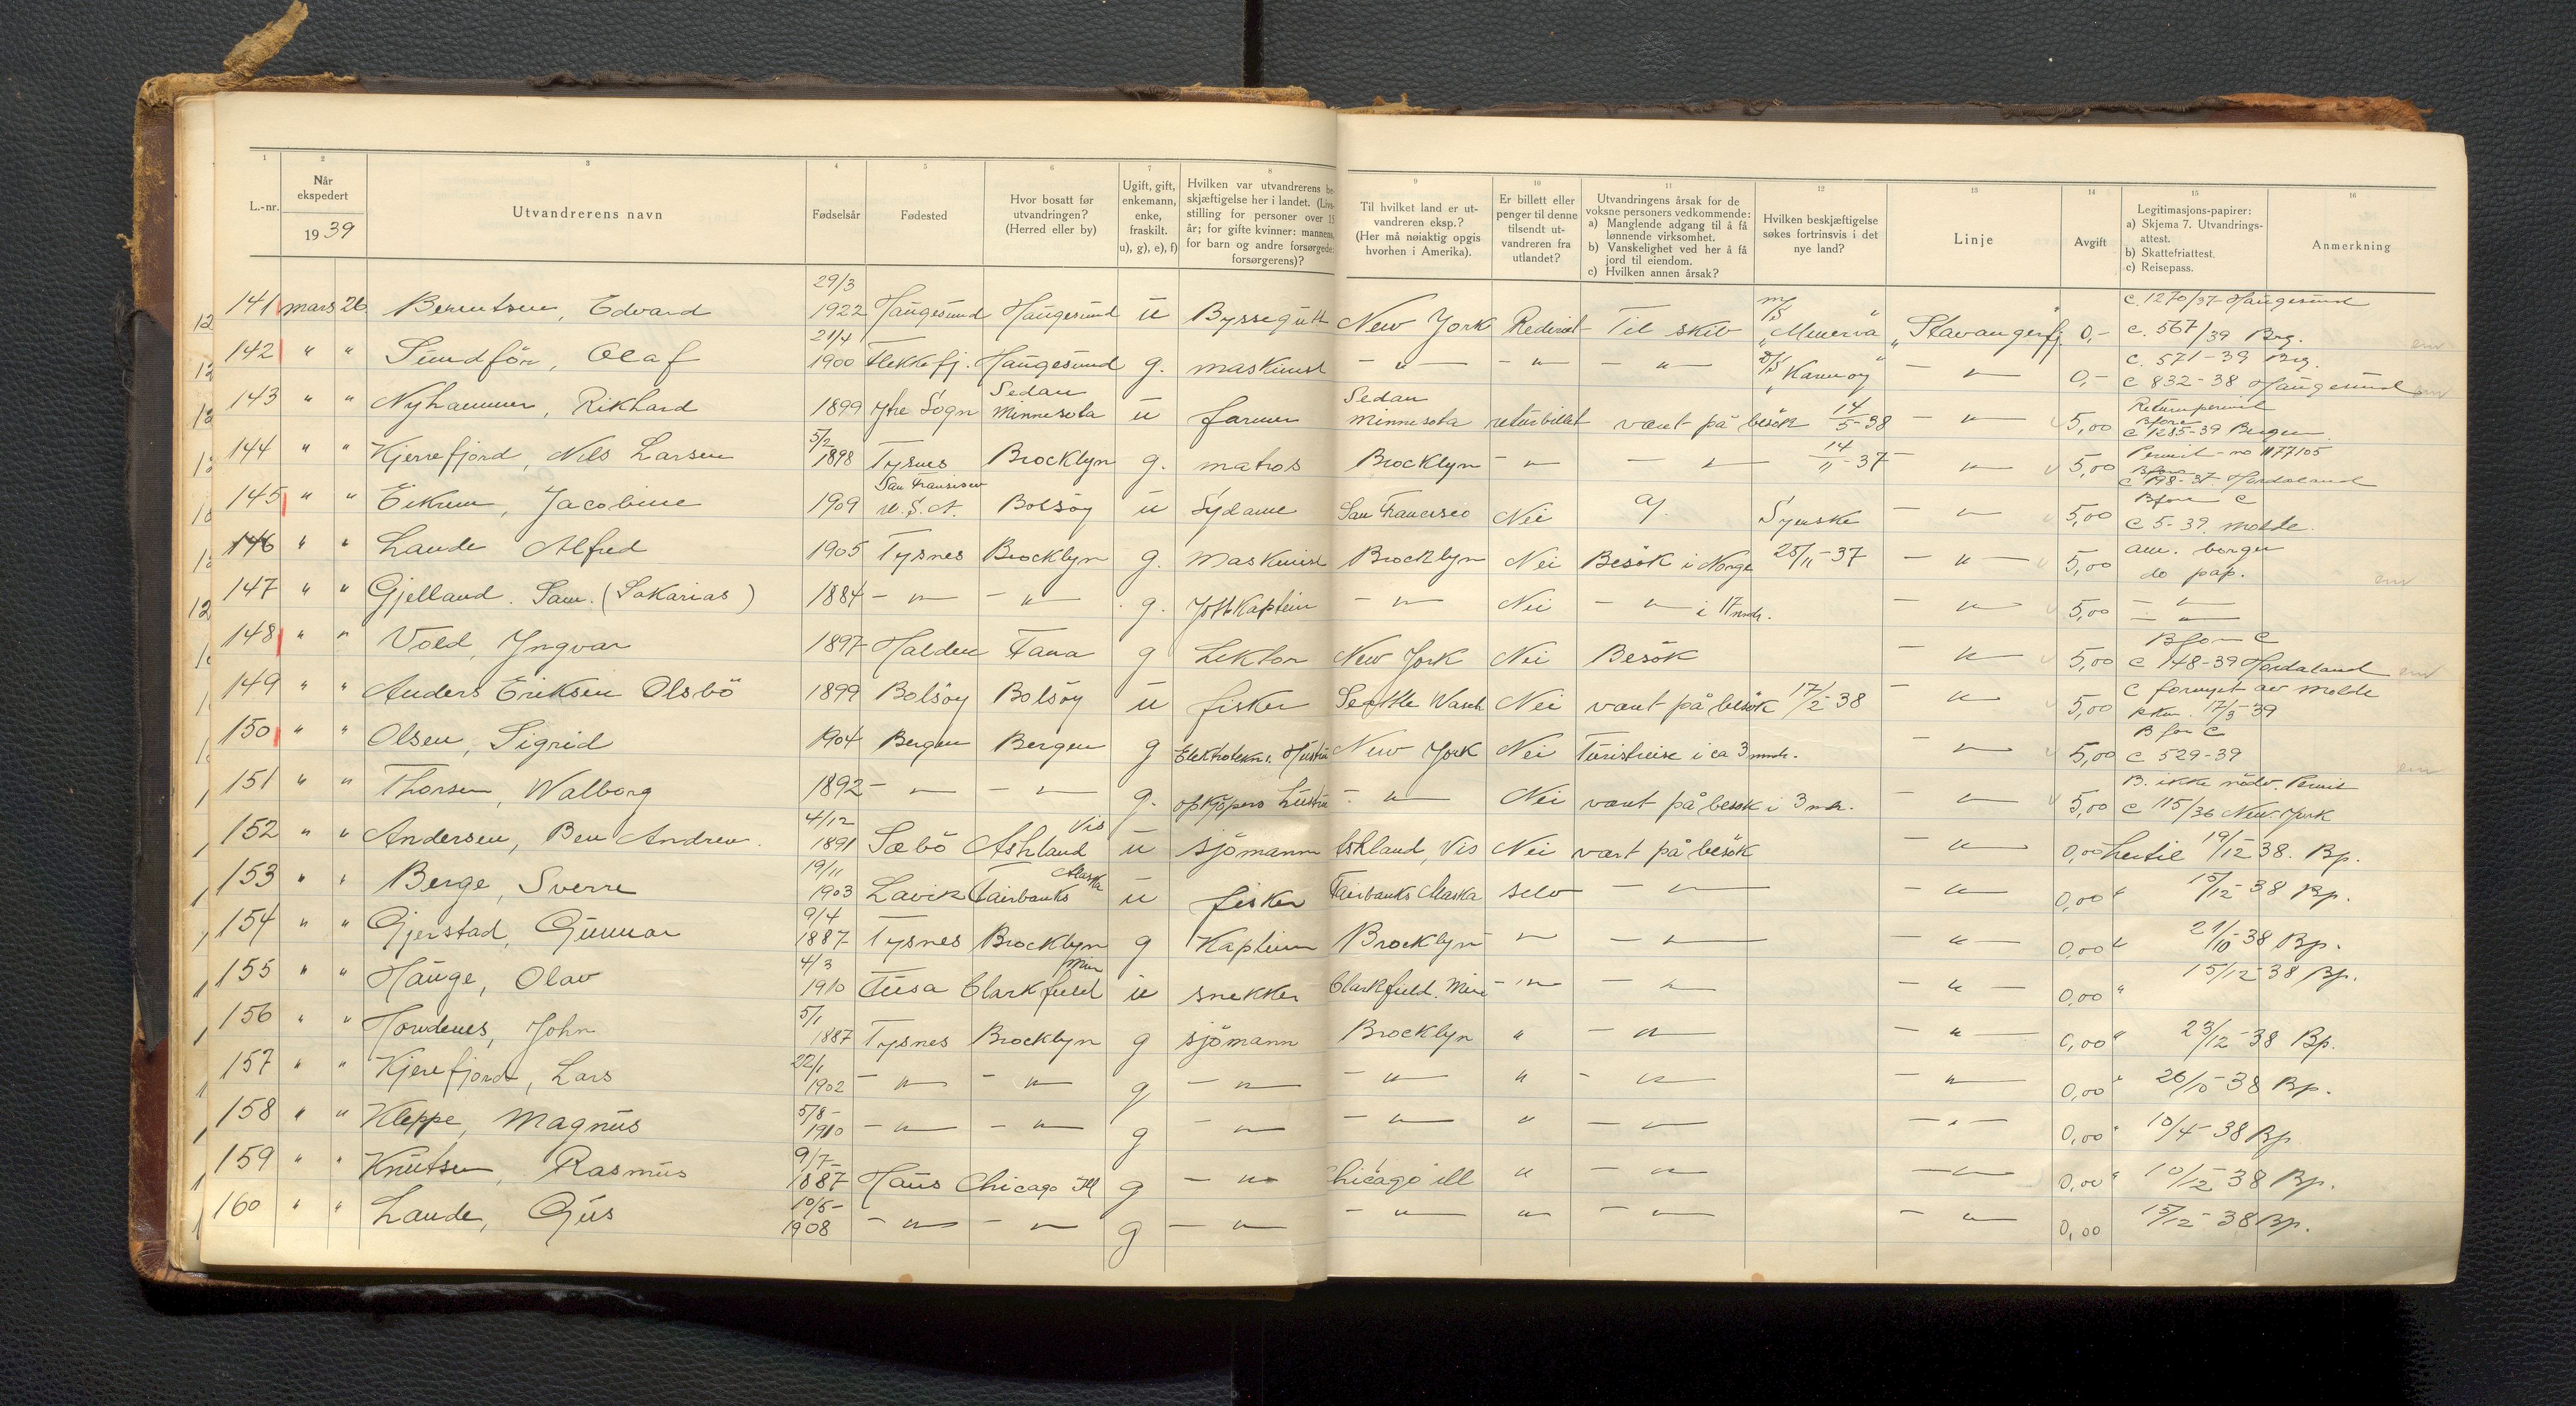 1 2 3 4 5 6 7 8 9 10 11 12 13 14 15 16
L.-nr. Når ekspedert 1939 Utvandrerens navn Fødselsår Fødested Hvor bosatt før utvandringen? (Herred eller by) Ugift, gift, enkemann, enke, fraskilt. u), g), e), f) Hvilken var utvandrerens be-skjæftigelse her i landet. (Livs-stilling for personer over 15 år; for gifte kvinner: mannens, for barn og andre forsørgede: forsørgerens)? Til hvilket land er ut-vandreren eksp.? (Her må nøiaktig opgis hvorhen i Amerika). Er billett eller penger til denne tilsendt ut-vandreren fra utlandet? Utvandringens årsak for de voksne personers vedkommende: a) Manglende adgang til å få lønnende virksomhet. b) Vanskelighet ved her å få jord til eiendom. c) Hvilken annen årsak? Hvilken beskjæftigelse søkes fortrinsvis i det nye land? Linje Avgift Legitimasjons-papirer: a) Skjema 7. Utvandrings-attest. b) Skattefriattest. c) Reisepass. Anmerkning
141 mars 26 Berentsen, Edvard 29/3 1922 Haugesund Haugesund u Byssegutt New York Rederiet Til skib m/s "Minerva" "Stavangerfj. 0,- c. 1270/37 Haugesund c. 567/39 Brg.
142 " " Sundför, Olaf 21/4 1900 Flekkefj. Haugesund g. maskinist - " - - " - - " - "Karmøy" - " - 0,- c. 571-39 Brg. c 832-38 Haugesund
143 " " Nyhammer, Rikhard 1899 Ytre Sogn Sedan Minnesota u farmer Sedan Minnesota returbillet vært på besök 14/5-38 - " - 5,00 Returnpermit B for c 1285-39 Bergen
144 " " Kjerrefjord, Nils Larsen 5/2 1898 Tysnes Brocklyn g. matros Brocklyn - " - - " - 14/11-37 - " - 5,00 Permit-no 1177105 c 198-37 Hordaland
145 " " Eikrem, Jacobine 1909 San Fransisco U.S.A. Bolsöy u Sydame San Francisco Nei a). Syerske - " - 5,00 B for c c 5-39 molde.
146 " " Lande Alfred 1905 Tysnes Brocklyn g. Maskinist Brocklyn Nei Besök i Norge 25/11-37 - " - 5,00 am. borger do pap.
147 " " Gjelland. Sam. (Sakarias) 1884 - " - - " - g. Kaptein - " - Nei - " - i 17 mndr. - " - 5,00 - " - - " -
148 " " Vold, Yngvar 1897 Halden Fana g Lektor New York Nei Besök - " - 5,00 B for c c 148-39 Hordaland
149 " " Anders Eriksen Olsbö 1899 Bolsöy Bolsöy u fisker Seattle Wash Nei vært på besök 17/2-38 - " - 5,00 c fornyet av molde 17/3 39
150 " " Olsen, Sigrid 1904 Bergen Bergen g Elektrotekn. Hustru New York Nei Turistreise i ca 3 mndr. - " - 5,00 B for c c 529-39
151 " " Thorsen, Walborg 1892 - " - - " - g. opkjøpers hustru - " - Nei vært på besök i 3 mdr. - " - 5,00 B. ikke nödv. Permit c 115/36 New York
152 " " Andersen, Ben Andrew. 4/12 1891 Sæbö Ashland Vis u sjömann Ashland, Vis Nei vært på besök - " - 0,00 hertil 19/12 38. Bp.
153 " " Berge, Sverre 19/11 1903 Lavik Fairbanks Alaska u fisker Fairbanks Alaska selv - " - - " - 0,00 " 15/12-38 Bp.
154 " " Gjerstad, Gunnar 9/4 1887 Tysnes Brocklyn g Kaptein Brocklyn - " - " - - " - 0,00 " 29/10-38 Bp.
155 " " Hauge, Olav 4/3 1910 Fusa Clarkfield Min u snekker Clarkfield. Min - " - - " - - " - 0,00 " 15/12-38 Bp.
156 " " Hovdenes, John 5/1 1887 Tysnes Brocklyn g sjömann Brocklyn " - " - - " - 0,00 " 23/12-38 Bp.
157 " " Kjerefjord, Lars 22/1 1902 - " - - " - g - " - - " - " - " - - " - 0,00 " 26/10-38 Bp.
158 " " Kleppe, Magnus 5/8- 1910 - " - - " - g - " - - " - " - " - - " - 0,00 " 10/4-38 Bp
159 " " Knutsen, Rasmus 9/7- 1887 Haus Chicago Ill g - " - Chicago ill " - " - - " - 0,00 " 10/12-38 Bp.
160 " " Lande, Gus 10/5- 1908 - " - - " - g - " - - " - " - " - - " - 0,00 15/12-38 Bp.